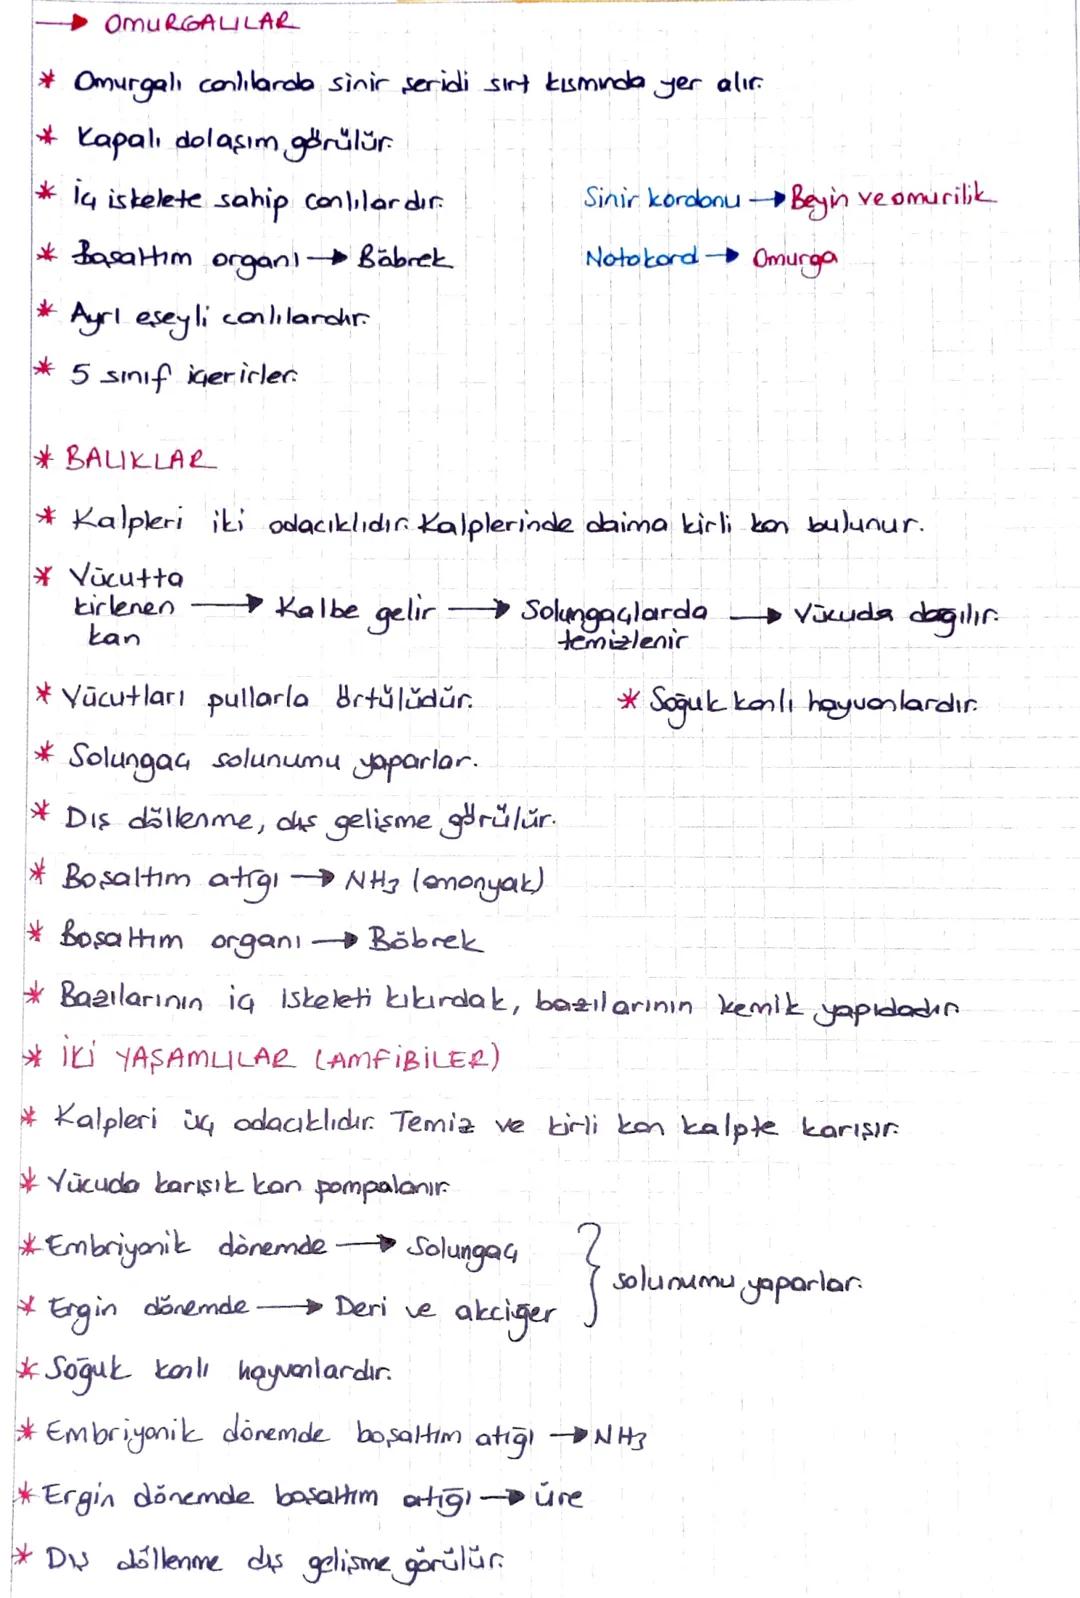 → OMURGALILAR
* Omurgalı canlılarda sinir şeridi sırt kısmında yer alır.
* Kapalı dolaşım görülür.
* İç iskelete sahip canlılardır.
Sinir kordonu → Beyin ve omurilik
* Boşaltım organı → Böbrek
Notokord → Omurga
* Ayrı eşeyli canlılardır.
* 5 sınıf içerirler.
* BALIKLAR
* Kalpleri iki odacıklıdır. Kalplerinde daima kirli kan bulunur.
* Vücutta kirlenen kan → Kalbe gelir → Solungaçlarda temizlenir → Vücuda dağılır.
* Vücutları pullarla örtülüdür.
* Soğuk kanlı hayvanlardır.
* Solungaç solunumu yaparlar.
* Dış döllenme, dış gelişme görülür.
* Boşaltım atığı → NH3 (amonyak)
* Boşaltım organı → Böbrek
* Bazılarının iç iskeleti kıkırdak, bazılarının kemik yapıdadır
* İKİ YAŞAMLILAR (AMFİBİLER)
* Kalpleri üç odacıklıdır. Temiz ve kirli kan kalpte karışır.
* Vücuda karışık kan pompalanır.
* Embriyonik dönemde → Solungaç
* Ergin dönemde → Deri ve akciğer } solunumu yaparlar.
* Soğuk kanlı hayvanlardır.
* Embriyonik dönemde boşaltım atığı → NH3
* Ergin dönemde boşaltım atığı → üre
* Dış döllenme dış gelişme görülür.